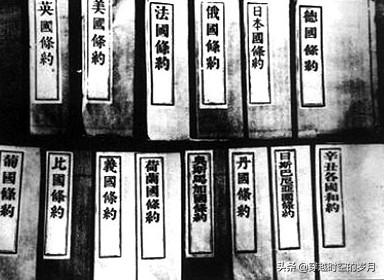 英國條約
美國條約
法國條約
俄國條約
日本國條約
德國條約
葡國條約
比國條約
義國條約
荷蘭國條約
奧斯馬加國條約
丹國條約
日斯巴尼亞國條約
辛丑各國和約
头条 @穿越时空的岁月